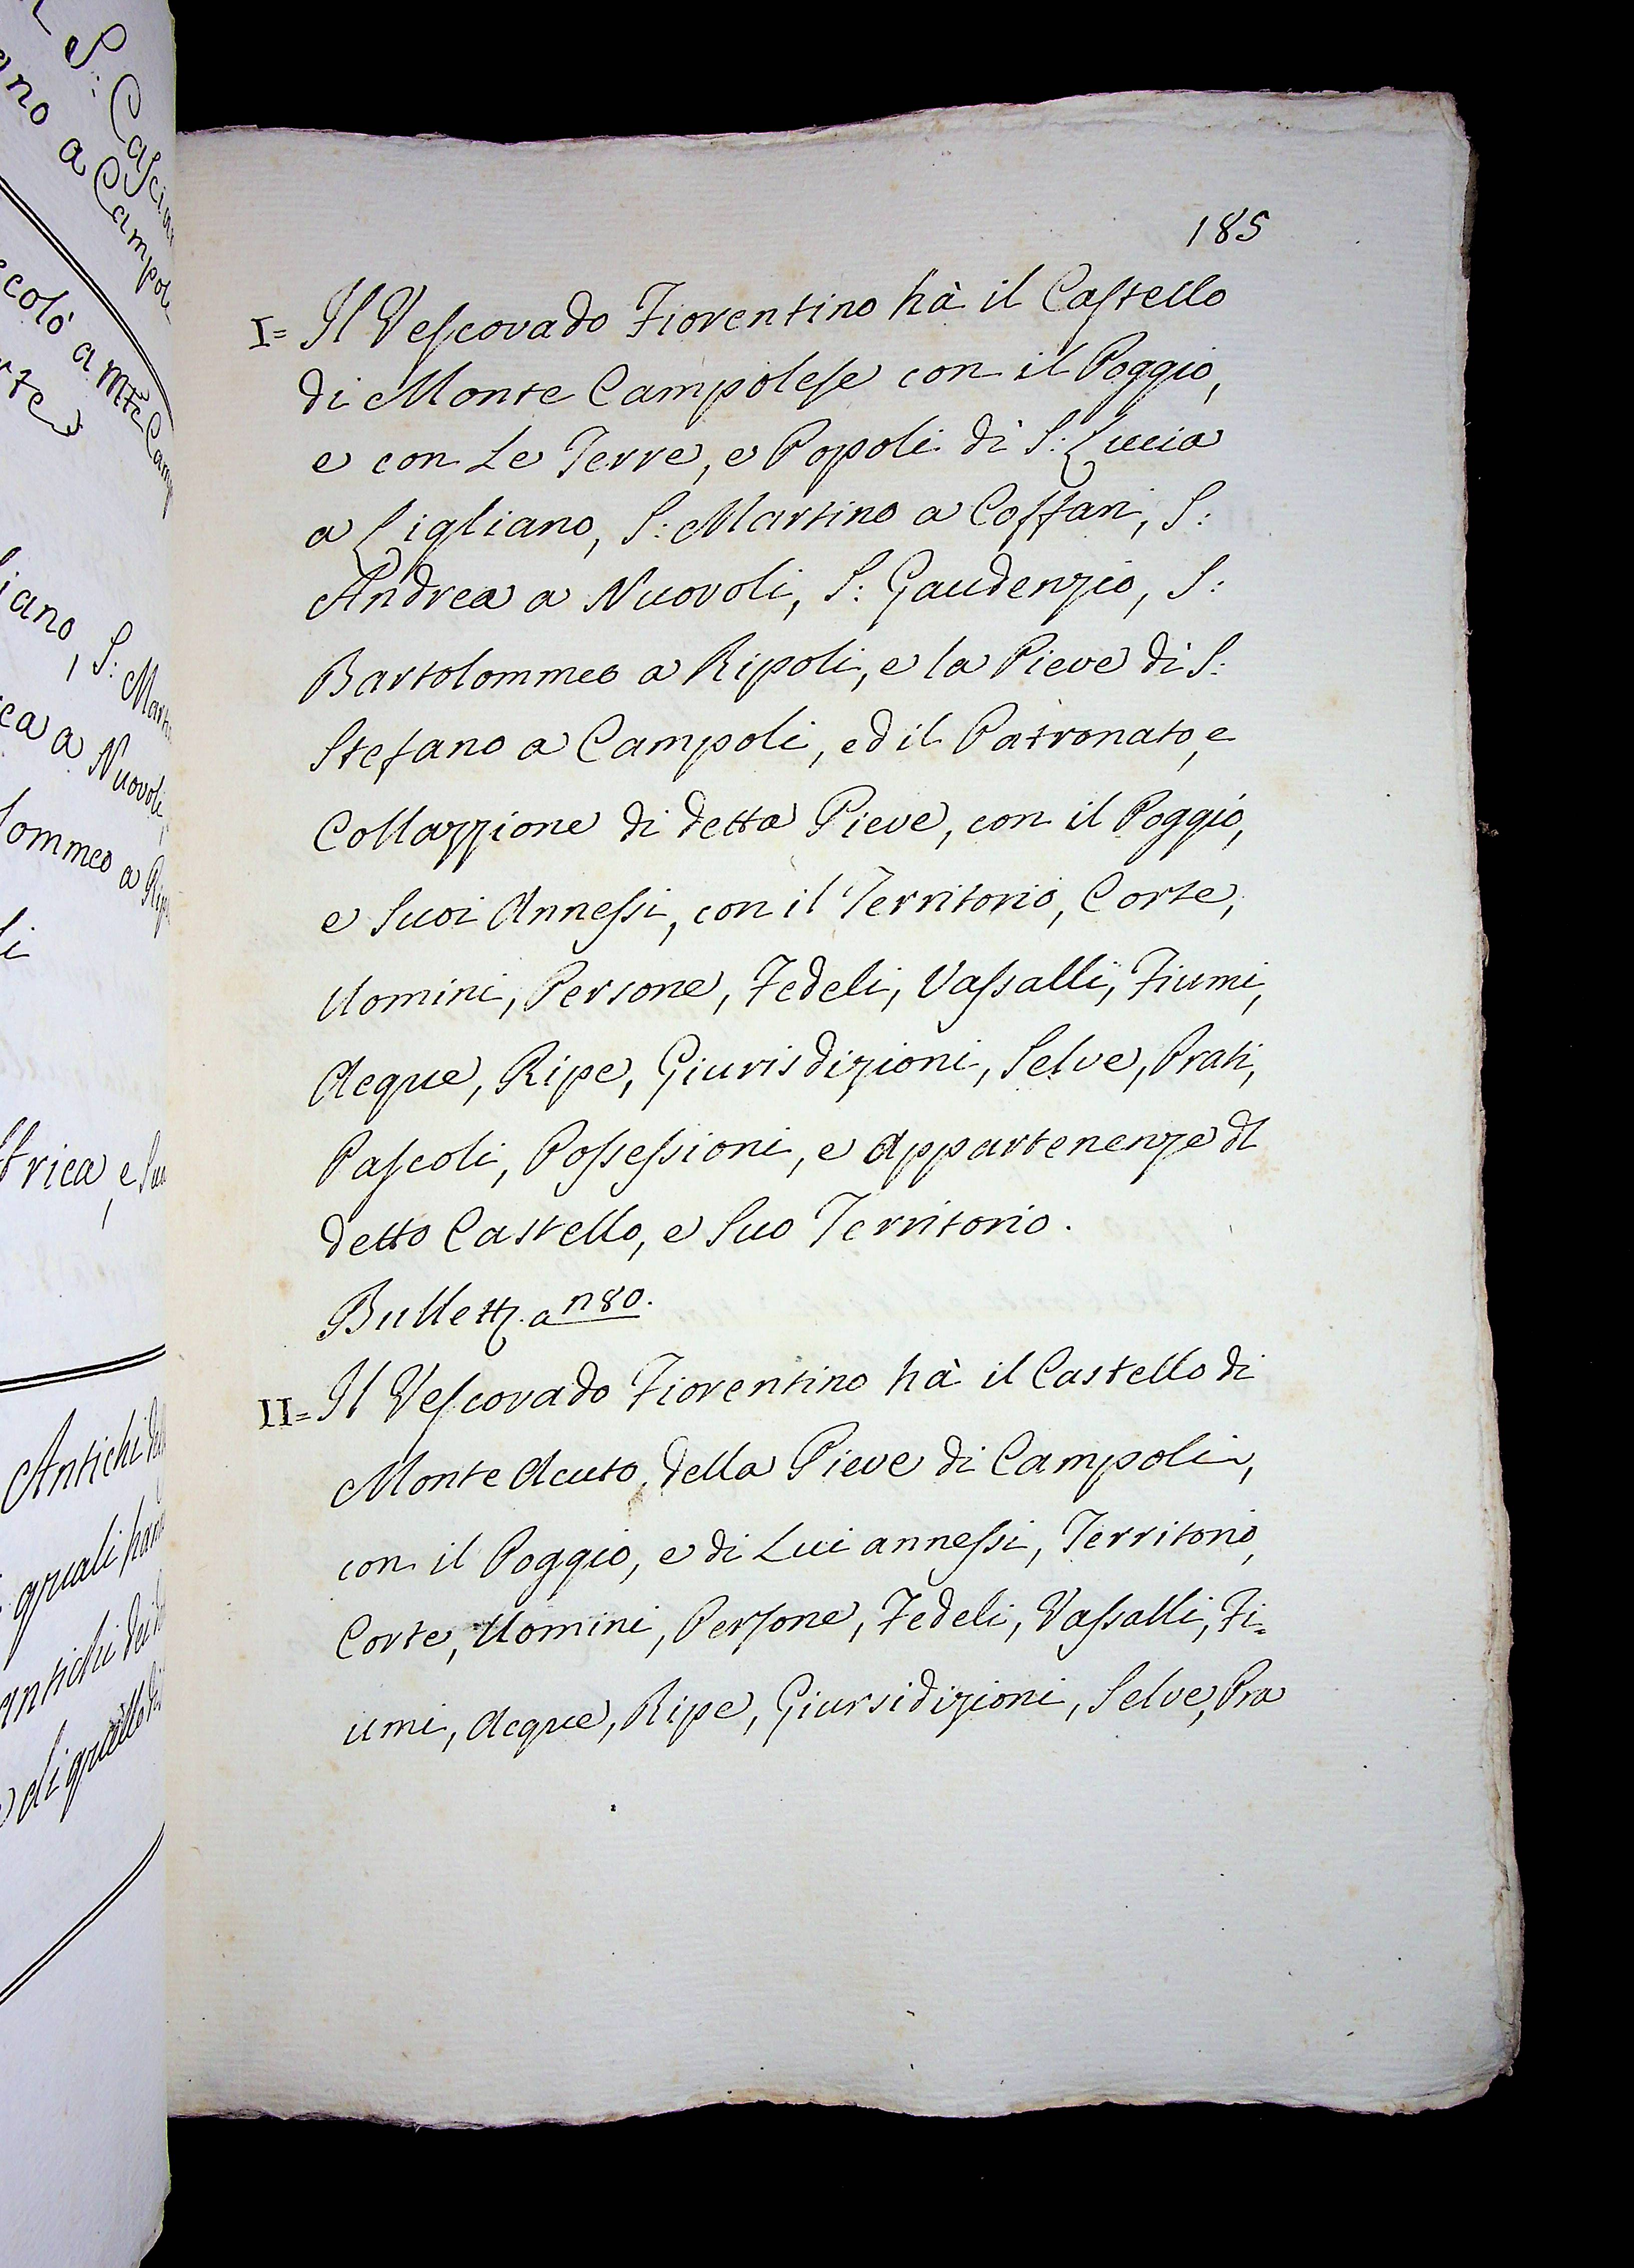 185
I= Il Vescovado Fiorentino hà il Castello
di Monte Campolese con il Poggio,
e con Le Terre, e Popoli di S: Lucia
a Ligliano, S: Martino a Coffari, S:
Andrea a Nuovoli, S: Gaudenzio, S:
Bartolommeo a Ripoli, e la Pieve di S:
Stefano a Campoli, ed il Patronato, e
Collazzione di detta Pieve, con il Poggio,
e Suoi Annessi, con il Territorio, Corte,
Uomini, Persone, Fedeli, Vassalli, Fiumi,
Acque, Ripe, Giurisdizioni, Selve, Prati,
Pascoli, Possessioni, e Appartenenze di
detto Castello, e Suo Territorio.
Bullett. a n 80.
II= Il Vescovado Fiorentino hà il Castello di
Monte Acuto, della Pieve di Campoli,
con il Poggio, e di Lui annessi, Territorio,
Corte, Uomini, Persone, Fedeli, Vassalli, Fi=
umi, Acque, Ripe, Giursidizioni, Selve, Pra
S: Cascia
ano a Campol
ccolò a Mte Camp
rte
iano, S: Mart
ea a Nuovoli,
lommeo a Rip
li
trica, e Su
Antichi
quali
antichi dei